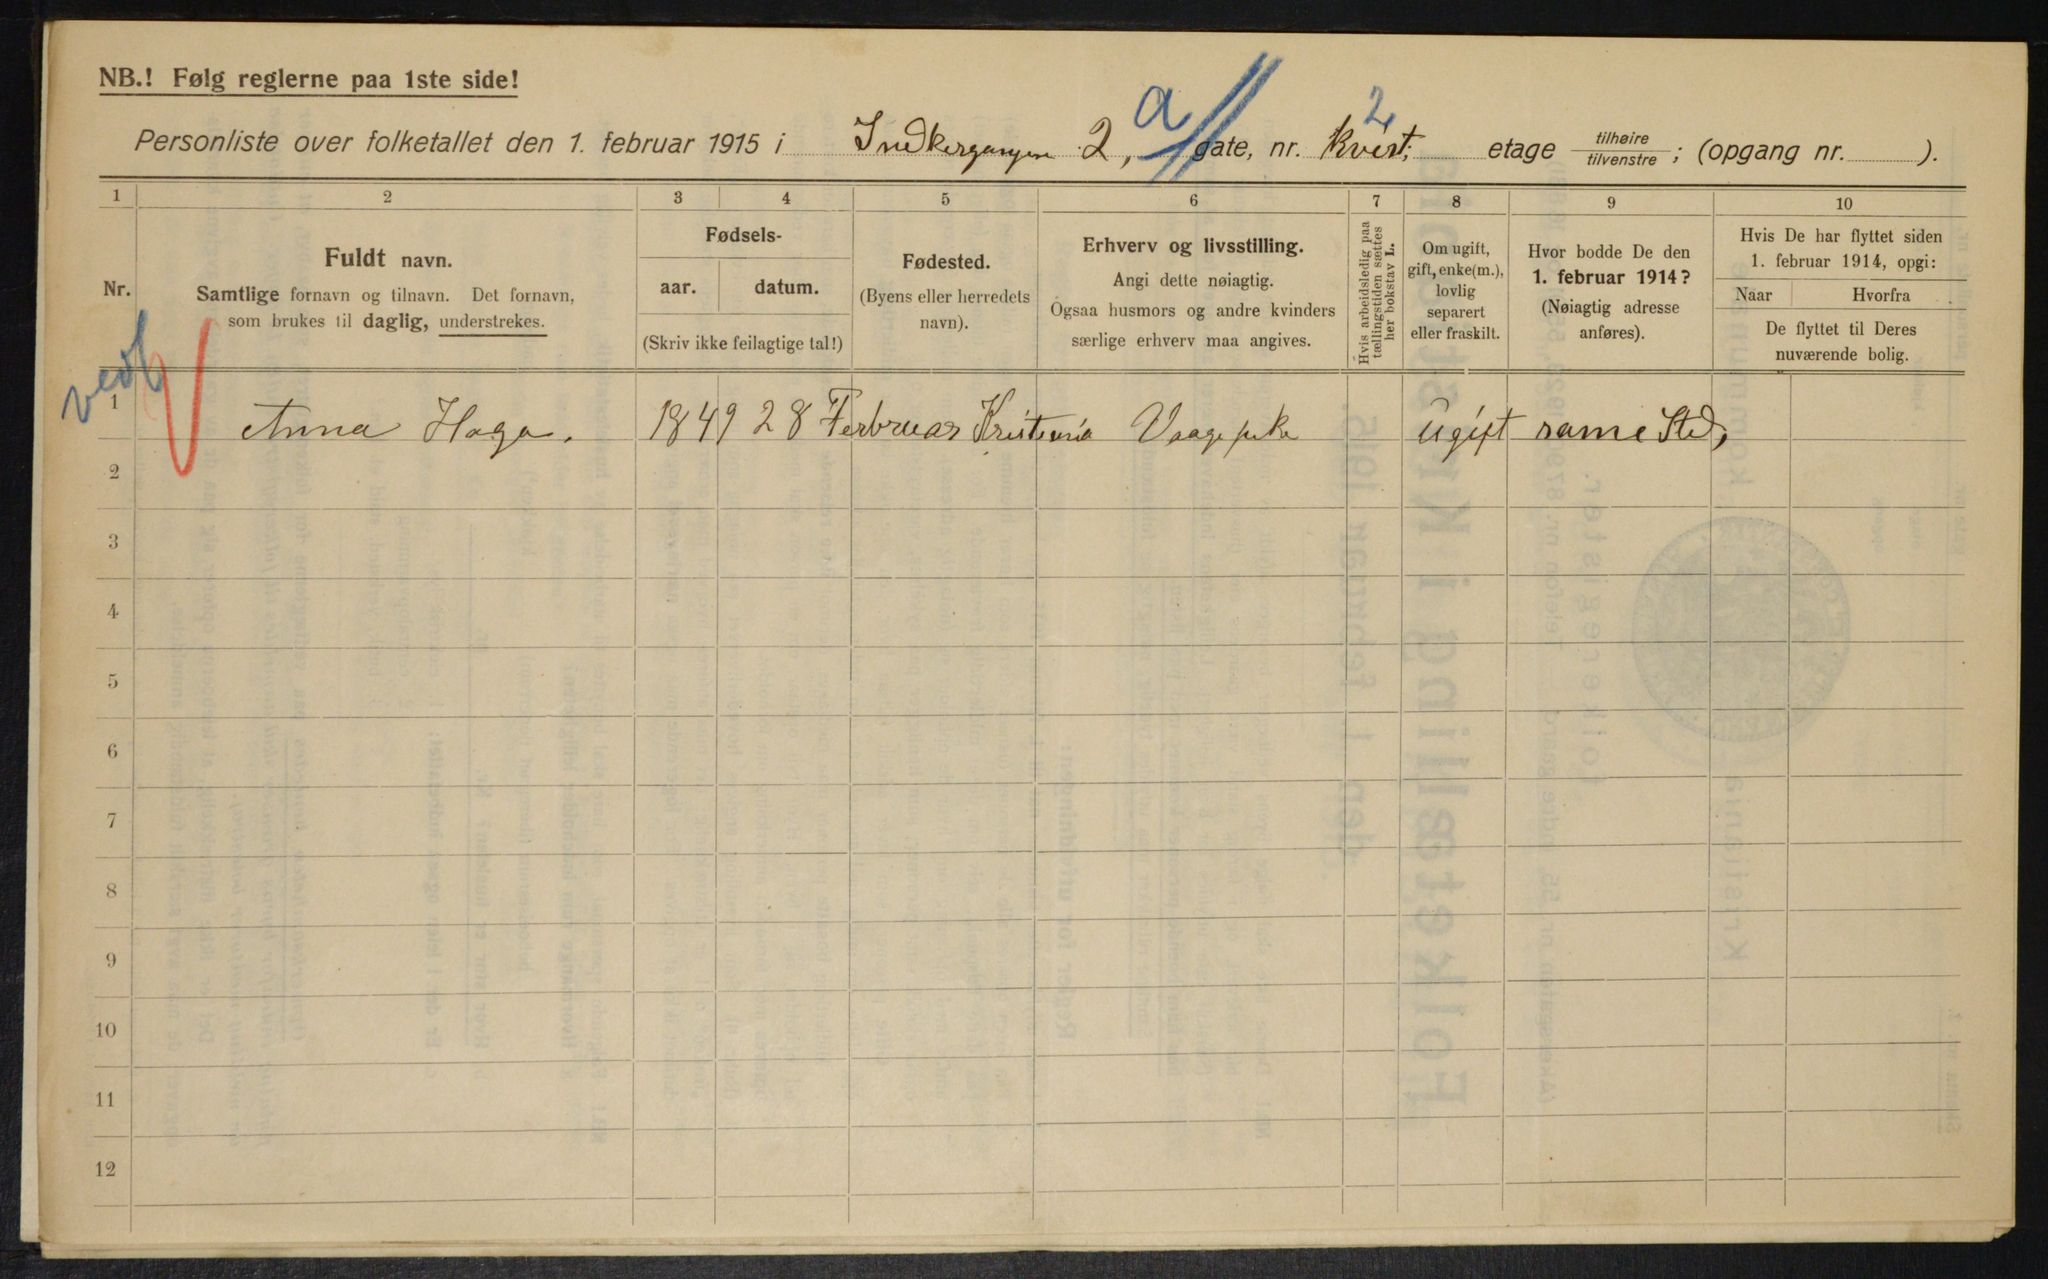 NB.! Følg reglerne paa 1ste side!
a 2
Personliste over folketallet den 1. februar 1915 i Indkergangen 2, gate, nr. kvist, etage tilhøire tilvenstre; (opgang nr. ).
1 2 3 4 5 6 7 8 9 10
Nr.
Fuldt navn.
Samtlige fornavn og tilnavn. Det fornavn,
som brukes til daglig, understrekes.
Fødsels-
aar. datum.
(Skriv ikke feilagtige tal!)
Fødested.
(Byens eller herredets
navn).
Erhverv og livsstilling.
Angi dette nøiagtig.
Ogsaa husmors og andre kvinders
særlige erhverv maa angives.
Hvis arbeidsledig paa
tællingstiden sættes
her bokstav L.
Om ugift,
gift, enke(m.),
lovlig
separert
eller fraskilt.
Hvor bodde De den
1. februar 1914?
(Nøiagtig adresse
anføres).
Hvis De har flyttet siden
1. februar 1914, opgi:
Naar Hvorfra
De flyttet til Deres
nuværende bolig.
1 Anna Haga. 1849 28 Ferbruar Kristania ugift same Sted,
2
3
4
5
6
7
8
9
10
11
12